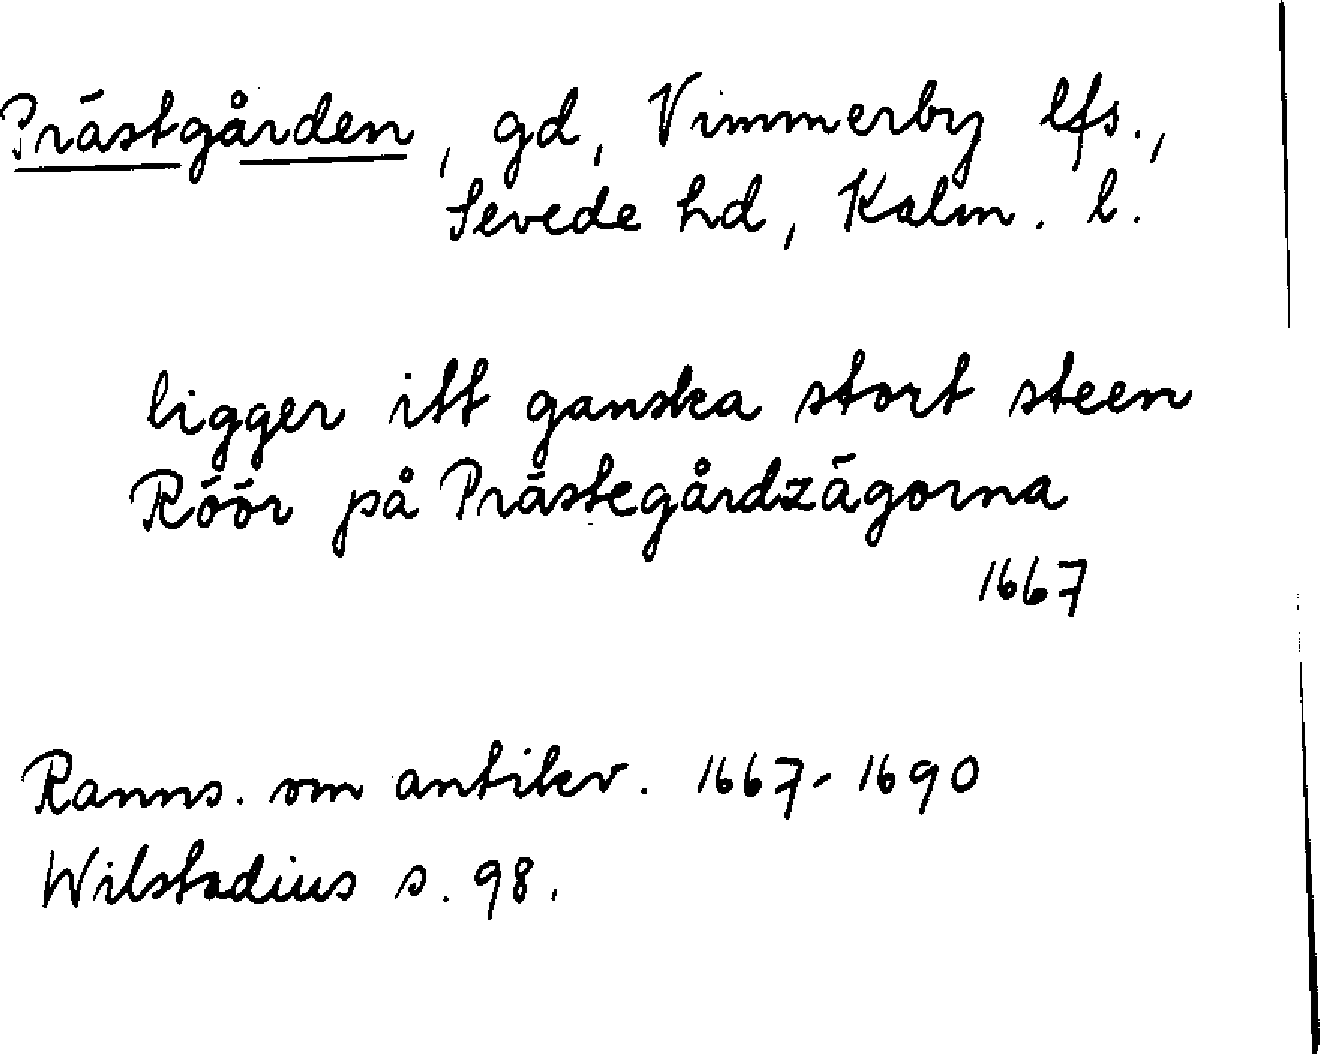 Prästgården, gd, Vimmerby lfs.,
Sevede hd, Kalm. l.
ligger itt ganska stort steen
Röör på Prästegårdzägorna
1667
Ranns. om antikv. 1667-1690
Wilstadius s. 98.